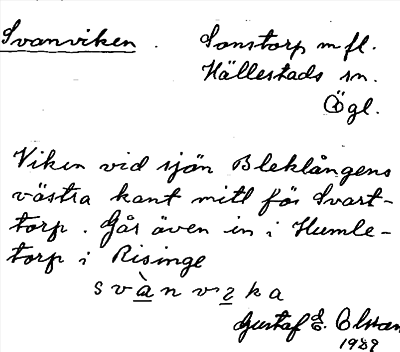 Svanviken. Sonstorp m fl.
Hällestads sn.
Ögl.
Viken vid sjön Bleklångens
västra kant mitt för Svart-
torp. Går även in i Humle-
torp i Risinge
svànvika
Gustaf E. Olsson